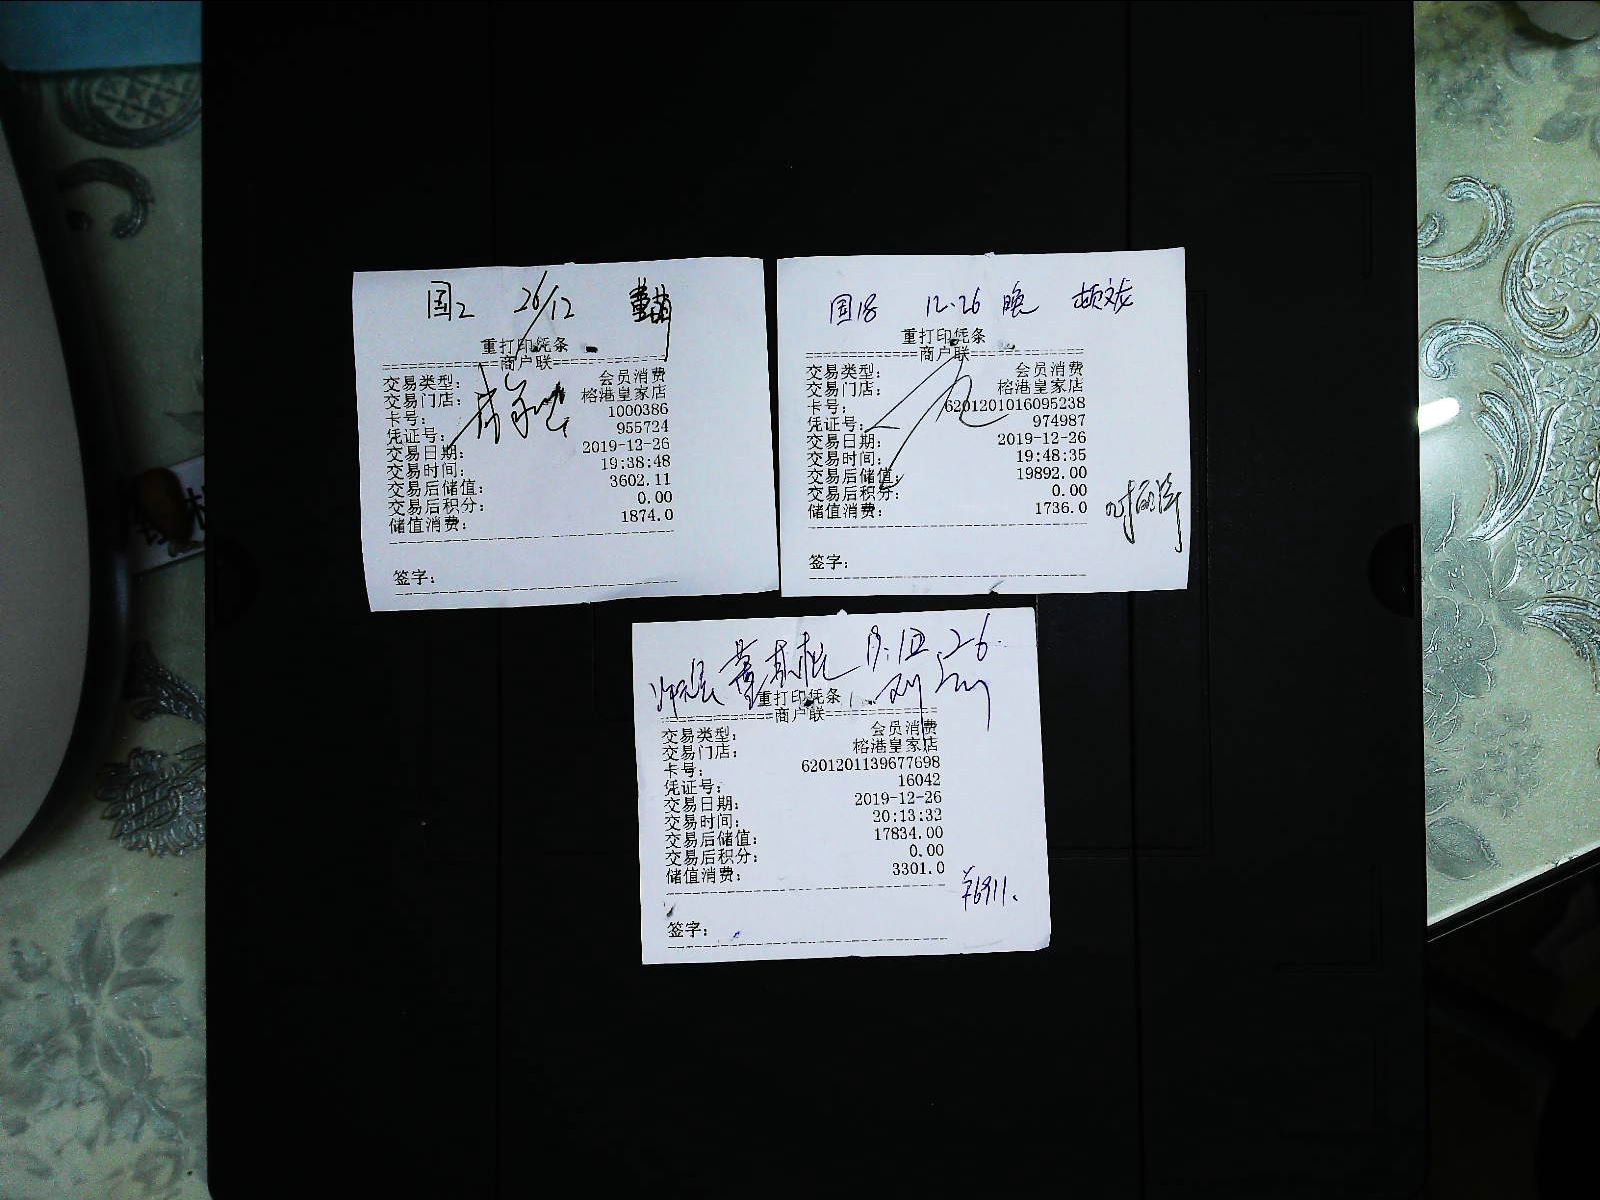 国2 26/12
重打印凭条
============商户联============
交易类型: 会员消费
交易门店: 榕港皇家店
卡号: 1000386
凭证号: 955724
交易日期: 2019-12-26
交易时间: 19:38:48
交易后储值: 3602.11
交易后积分: 0.00
储值消费: 1874.0
签字:
国18 12.26 晚
重打印凭条
============商户联============
交易类型: 会员消费
交易门店: 榕港皇家店
卡号: 6201201016095238
凭证号: 974987
交易日期: 2019-12-26
交易时间: 19:48:35
交易后储值: 19892.00
交易后积分: 0.00
储值消费: 1736.0
签字:
19.12.26
重打印凭条
============商户联============
交易类型: 会员消费
交易门店: 榕港皇家店
卡号: 6201201139677698
凭证号: 16042
交易日期: 2019-12-26
交易时间: 20:13:32
交易后储值: 17834.00
交易后积分: 0.00
储值消费: 3301.0
¥6911.
签字: